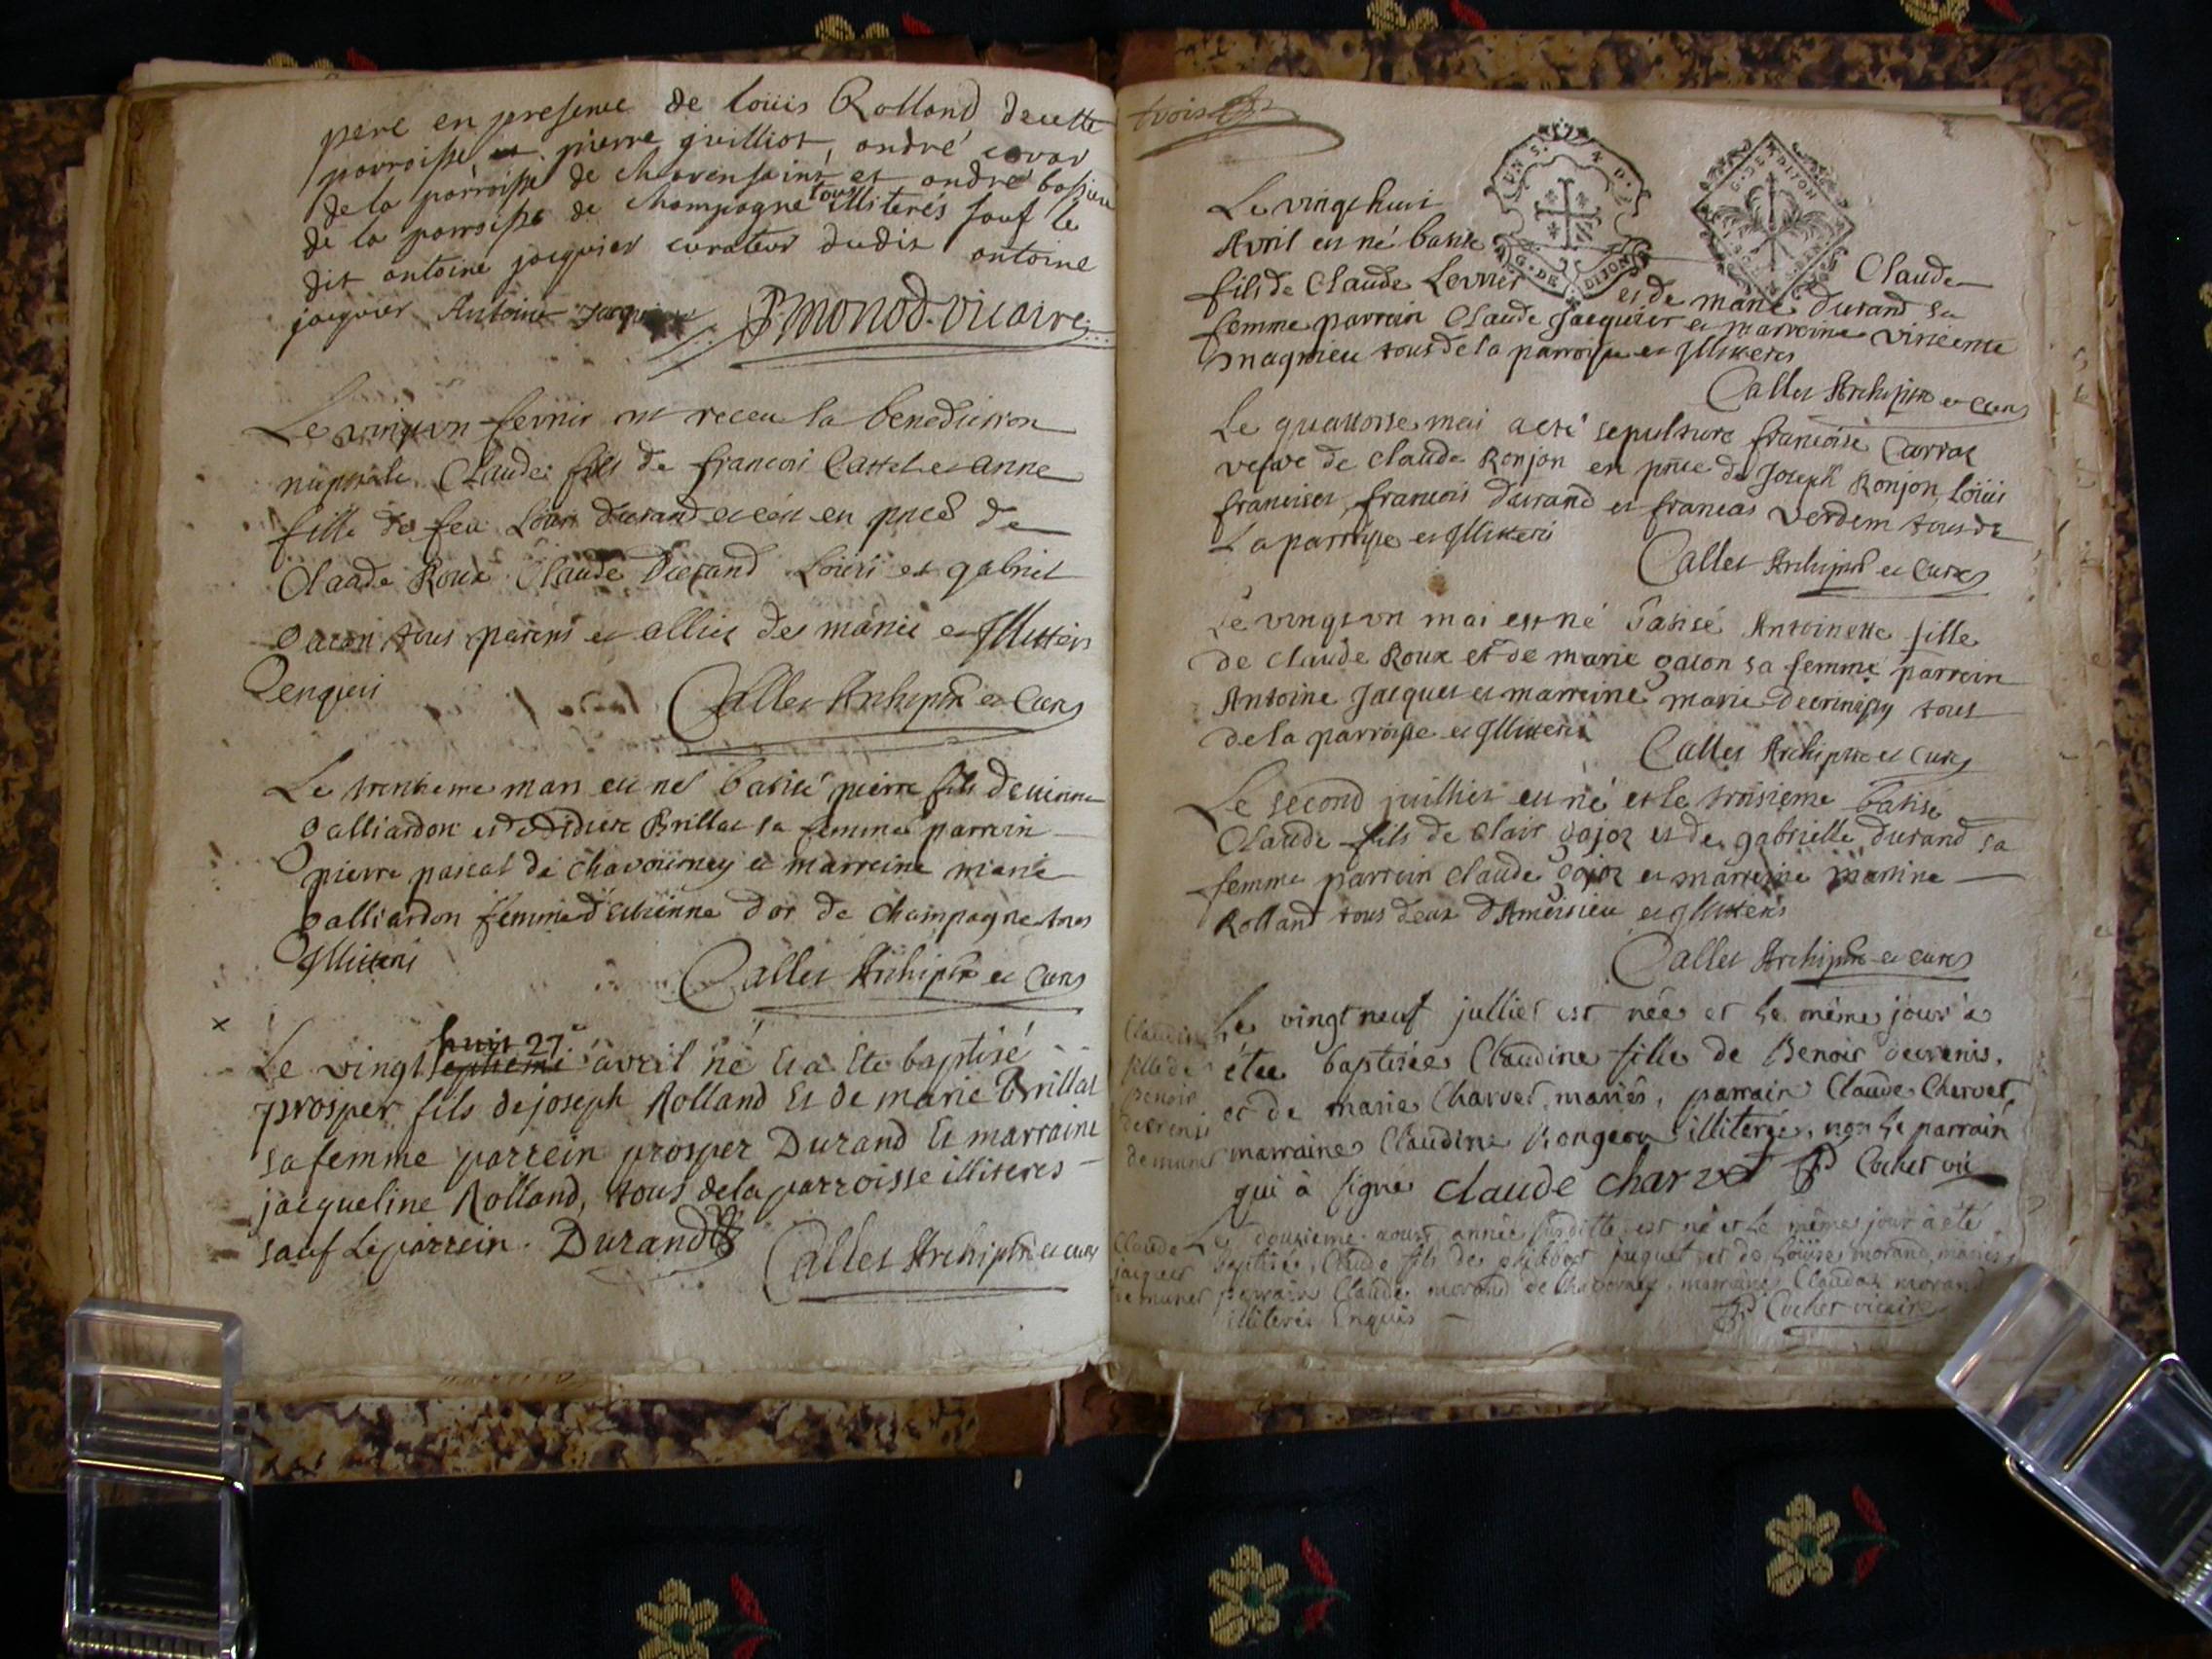 pere en presence de loüis Rolland decette
parroisse et pierre guilliot, andré
de la parroisse de et andré
de la parroisse de champagne tous illiterés sauf le
dit antoine jacquier curateur dudit antoine
jacquier Antoine
P. monod. vicaire
Le vingt un fevrier ont receu la benediction
nuptiale Claude fils de francois Cattel et anne
fille de feu Louis durand et ce en pnce de
Claude Roux Claude Durand Loüis et gabriel
gacon tous parens et alliez des mariés et Illitterés
enquis
Callet Archiptre et Curé
Le trentieme mars est né batisé pierre fils detienne
galliardon et de Didiere Brillat sa femme parrein
pierre pascal de chavourney et marreine marie
galliardon femme d'etienne d'or de champagne tous
Illitterés
Callet Archiptre et Curé
x
huit 27e
Le vingt septieme avril né Et a Ete baptisé
prosper fils de joseph Rolland Et de marie Brillat
sa femme parrein prosper Durand Et marraine
jacqueline Rolland, tous dela parroisse illiteres
sauf Le parrein. Durand
Callet Archiptre et curé
trois
UNS. 4 D.
G. DE DIJON
G. DE DIJON
Le vingt huit
Avril est né batisé
Claude
fils de Claude et de marie durand sa
femme parrein Claude Jacquier et marreine vincente
magnieu tous de la parroisse et Illitterés
Callet Archiptre et Curé
Le quattorse mai a eté sepulturé francoise Carraz
vefve de claude Ronjon en pnce de Joseph Ronjon, Loüis
franciset, francois durand et francois verdem tous de
La parroisse et Illitterés
Callet Archiptre et Curé
Le vingt un mai est né batisé Antoinette fille
de claude Roux et de marie gacon sa femme parrein
Antoine Jacquet et marreine marie decrenisy tous
de la parroisse et Illitterés
Callet Archiptre et Curé
Le second juilliet est né et le troisieme batisé
Claude fils de clair gojoz et de gabrielle durand sa
femme parrein claude gojoz et marreine marine
Rolland tous deux d'Ameisieu et Illitterés
Callet Archiptre et curé
Claudine
fille de
Benoit
decrenis
de munet
Le vingt neuf julliet est née et le même jour a
étée baptisée Claudine fille de Benoit decrenis,
et de marie Charvet, mariés, parrain Claude Chervet,
marraine Claudine Rongeon illiterée, non le parrain
qui à signé claude charvet Cochet vic
Claude
jacquet
de munet
Le douzieme aoust année susditte est né et le même jour à été
baptisé, Claude fils de philibert jaquet, et de Loüise morand, mariés,
parrain Claude morand de chavornay, marraine Claudaz morand
illiterés Enquis
Cochet vicaire